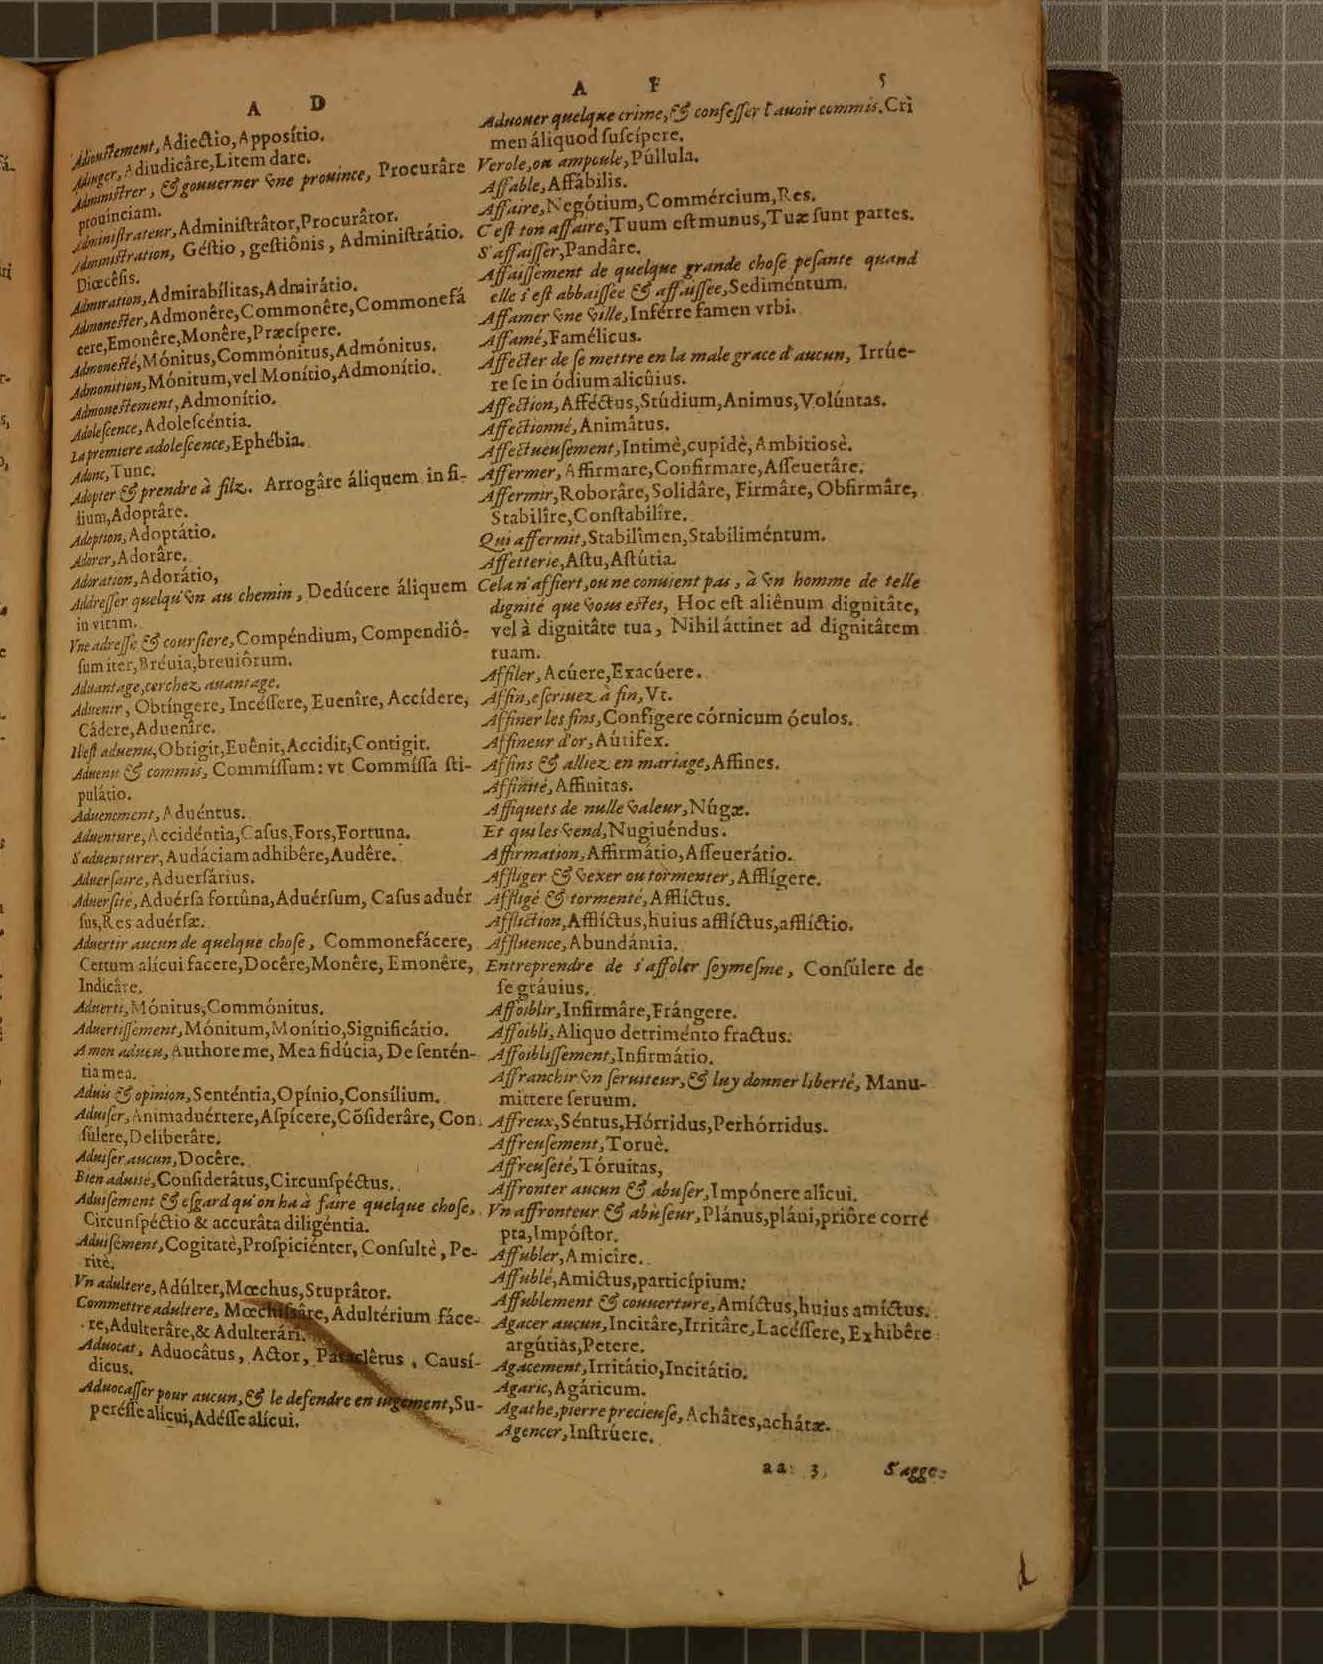 A D
Adioustement, Adiectio, Appositio.
Adiuger, Adiudicâre, Litem dare.
Administrer, & gouuerner vne prouince, Procurâre
prouinciam.
Administrateur, Administrâtor, Procurâtor.
Administration, Géstio, gestiônis, Administrátio.
Diœcêsis.
Admiration, Admirabílitas, Admirátio.
Admonester, Admonêre, Commonêre, Commonefá
cere, Emonêre, Monêre, Præcípere.
Admonesté, Mónitus, Commónitus, Admónitus.
Admonition, Mónitum, vel Monítio, Admonítio.
Admonestement, Admonítio.
Adolescence, Adolescéntia.
La premiere adolescence, Ephébia.
Adonc, Tunc.
Adopter & prendre à filz. Arrogâre áliquem in fi-
lium, Adoptâre.
Adoption, Adoptátio.
Adorer, Adorâre.
Adoration, Adorátio,
Addresser quelqu'vn au chemin, Dedúcere áliquem
in vitam.
Vne adresse & coursiere, Compéndium, Compendiô-
sum iter, Bréuia, breuiôrum.
Aduantage, cerchez auantage.
Aduenir, Obtíngere, Incéssere, Euenîre, Accídere,
Cádere, Aduenîre.
Il est aduenu, Obtigit, Euênit, Accidit, Contigit.
Aduenu & commis, Commíssum: vt Commíssa sti-
pulátio.
Aduenement, Aduéntus.
Aduenture, Accidéntia, Casus, Fors, Fortuna.
S'aduenturer, Audáciam adhibêre, Audêre.
Aduersaire, Aduersárius.
Aduersité, Aduérsa fortûna, Aduérsum, Casus aduér
sus, Res aduérsæ.
Aduertir aucun de quelque chose, Commonefácere,
Certum alícui facere, Docêre, Monêre, Emonêre,
Indicâre.
Aduerti, Mónitus, Commónitus.
Aduertissement, Mónitum, Monítio, Significátio.
A mon adueu, Authore me, Mea fidúcia, De sentén-
tia mea.
Aduis & opinion, Senténtia, Opínio, Consílium.
Aduiser, Animaduértere, Aspícere, Cõsiderâre, Con
súlere, Deliberâre.
Aduiser aucun, Docêre.
Bien aduisé, Considerâtus, Circunspéctus.
Aduisement & esgard qu'on ha à faire quelque chose,
Circunspéctio & accurâta diligéntia.
Aduisément, Cogitatè, Prospiciénter, Consultè, Pe-
ritè.
Vn adultere, Adúlter, Mœchus, Stuprâtor.
Commettre adultere, Mœchissâre, Adultérium fáce-
re, Adulterâre, & Adulterári.
Aduocat, Aduocâtus, Actor, Paraclêtus, Causí-
dicus.
Aduocasser pour aucun, & le defendre en iugement, Su-
peresse alícui, Adésse alícui.
A F 5
Aduouer quelque crime, & confesser l'auoir commis. Cri
men áliquod suscípere.
Verole, ou ampoule, Púllula.
Affable, Affábilis.
Affaire, Negótium, Commércium, Res.
C'est ton affaire, Tuum est munus, Tuæ sunt partes.
S'affaisser, Pandâre.
Affaissement de quelque grande chose pesante quand
elle s'est abbaissee & affaissee, Sediméntum.
Affamer vne ville, Inférre famen vrbi.
Affamé, Famélicus.
Affecter de se mettre en la male grace d'aucun, Irrúe-
re se in ódium alicûius.
Affection, Afféctus, Stúdium, Animus, Volúntas.
Affectionné, Animâtus.
Affectueusement, Intimè, cupidè, Ambitiosè.
Affermer, Affirmare, Confirmare, Asseuerâre.
Affermir, Roborâre, Solidâre, Firmâre, Obfirmâre,
Stabilîre, Constabilîre.
Qui affermit, Stabilimen, Stabiliméntum.
Affetterie, Astu, Astútia.
Cela n'affiert, ou ne conuient pas, à vn homme de telle
dignité que vous estes, Hoc est aliênum dignitâte,
vel à dignitâte tua, Nihil áttinet ad dignitâtem
tuam.
Affiler, Acúere, Exacúere.
Affin, escriuez à fin, Vt.
Affiner les fins, Configere córnicum óculos.
Affineur d'or, Aúrifex.
Affins & alliez en mariage, Affines.
Affinité, Affinitas.
Affiquets de nulle valeur, Núgæ.
Et qui les vend, Nugiuéndus.
Affirmation, Affirmátio, Asseuerátio.
Affliger & vexer ou tormenter, Afflígere.
Affligé & tormenté, Afflíctus.
Affliction, Afflíctus, huius afflíctus, afflíctio.
Affluence, Abundántia.
Entreprendre de s'affoler soymesme, Consúlere de
se gráuius.
Affoiblir, Infirmâre, Frángere.
Affoibli, Aliquo detriménto fractus.
Affoiblissement, Infirmátio.
Affranchir vn seruiteur, & luy donner liberté, Manu-
mittere seruum.
Affreux, Séntus, Hórridus, Perhórridus.
Affreusement, Toruè.
Affreuseté, Tóruitas,
Affronter aucun & abuser, Impónere alícui.
Vn affronteur & abuseur, Plánus, pláni, priôre corré
pta, Impóstor.
Affubler, Amicîre.
Affublé, Amictus, particípium:
Affublement & couuerture, Amíctus, huius amíctus.
Agacer aucun, Incitâre, Irritâre, Lacéssere, Exhibêre
argútias, Petere.
Agacement, Irritátio, Incitátio.
Agaric, Agáricum.
Agathe, pierre precieuse, Achâtes, achátæ.
Agencer, Instrúere.
aa 3, S'agge-
d